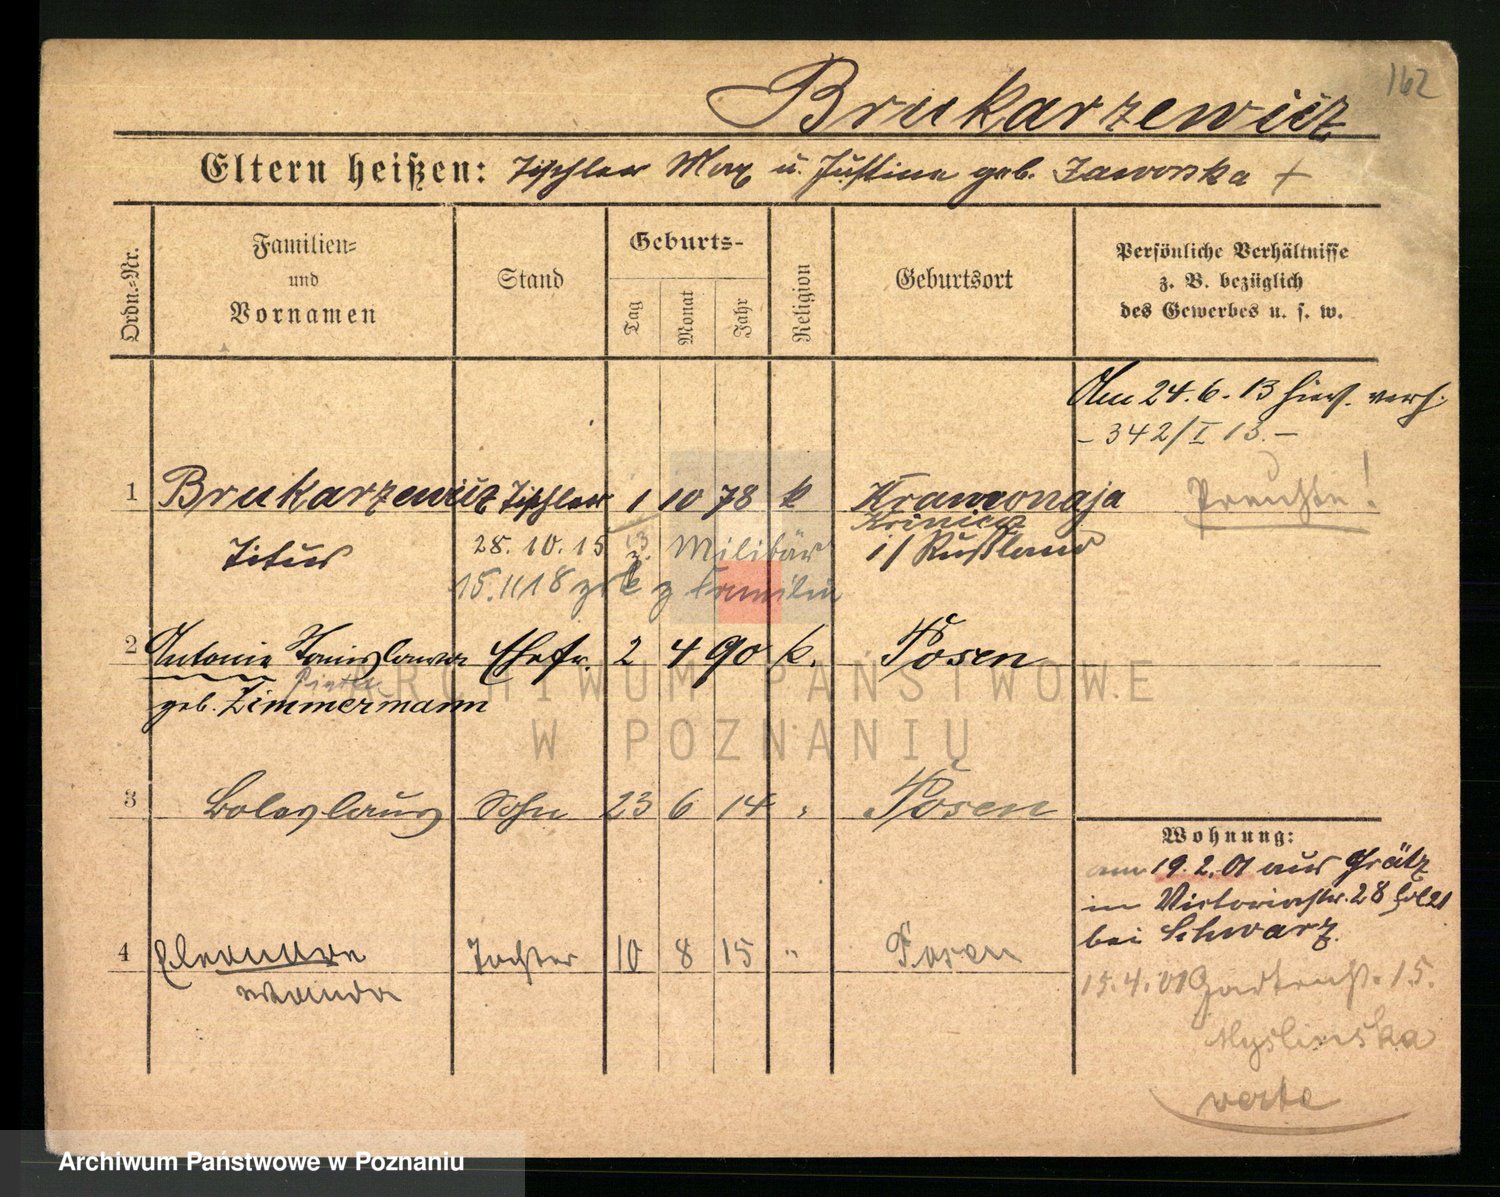 162
Brukarzewicz
Eltern heißen: Tischler Max u. Justine geb. Jaworska +
Ordn.-Nr.
Familien-
und
Vornamen
Stand
Geburts-
Tag
Monat
Jahr
Religion
Geburtsort
Persönliche Verhältnisse
z. B. bezüglich
des Gewerbes u. s. w.
Am 24.6.13 hier verh.
- 342/I 13. -
1 Brukarzewicz Tischler 1 10 78 k
Preuße!
Titus 28. 10. 15 z. Militär
i/ Rußland
15. 11 18 zrk z Familie
2 Antonie Stanislawa Ehefr. 2 4 90 k. Posen
geb. Zimmermann
3 Boleslaus Sohn 23 6 14 " Posen
4 Eleonore Tochter 10 8 15 " Posen
Wanda
Wohnung:
am 19.2.01 aus Grätz
in Victoriastr. 28
bei Schwarz
15.4.01 Gartenstr. 15.
Myslinska
verte
ARCHIWUM PAŃSTWOWE
W POZNANIU
Archiwum Państwowe w Poznaniu